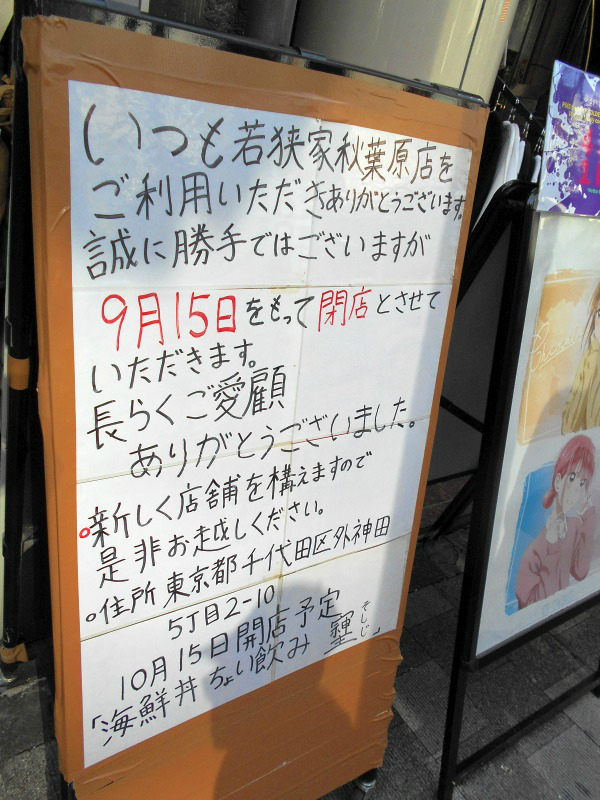 いつも若狭家秋葉原店を
ご利用いただきありがとうございます。
誠に勝手ではございますが
9月15日をもって閉店とさせて
いただきます。
長らくご愛顧
ありがとうございました。
○新しく店舗を構えますので
是非お越しください。
○住所 東京都千代田区外神田
5丁目2-10
10月15日開店予定
「海鮮丼 ちょい飲み
そしじ」